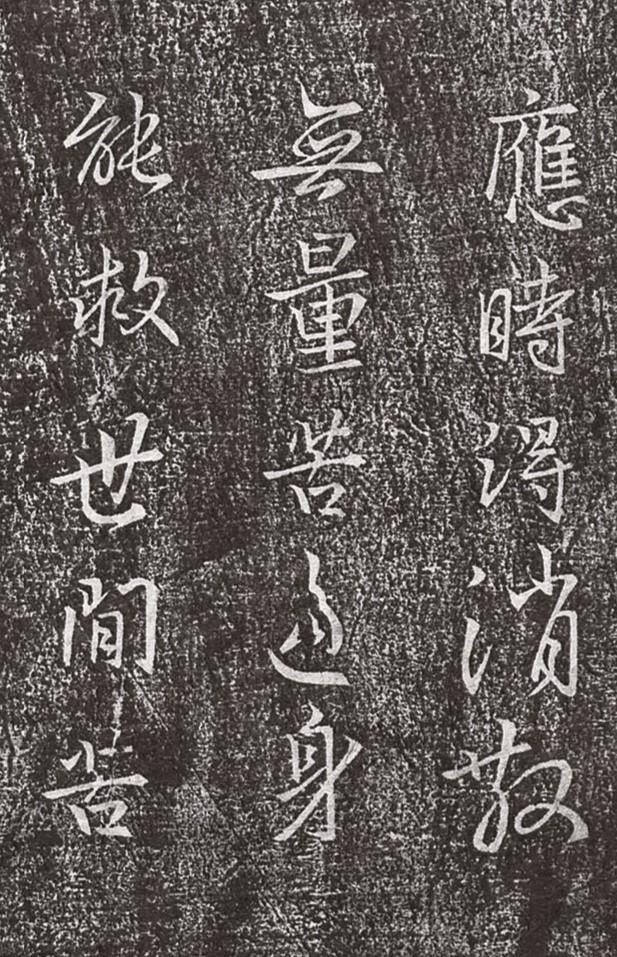 應時得消散
無量苦逼身
能救世間苦